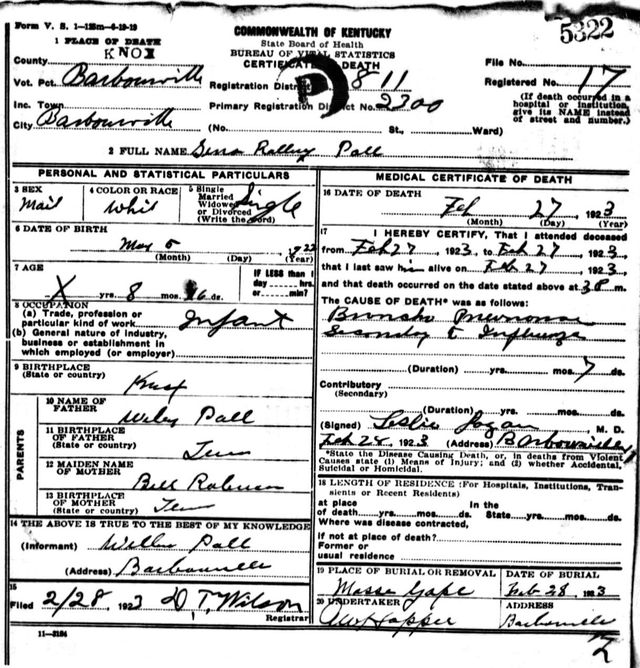 Form V. S. 1-125m-6-19-19
5322
COMMONWEALTH OF KENTUCKY
State Board of Health
BUREAU OF VITAL STATISTICS
CERTIFICATE OF DEATH
1 PLACE OF DEATH
County KNOX
Vot. Pct. Barbourville
Inc. Town
City Barbourville
Registration District 811
Primary Registration District No. 2300
(No. St., Ward)
File No.
Registered No. 17
(If death occurred in a
hospital or institution,
give its NAME instead
of street and number.)
2 FULL NAME
PERSONAL AND STATISTICAL PARTICULARS
3 SEX
Mail
4 COLOR OR RACE
Whit
5 Single
Married
Widowed
or Divorced
(Write the word)
Single
6 DATE OF BIRTH
5 1922
(Month) (Day) (Year)
7 AGE
X yrs. 8 mos. 16 ds.
IF LESS than 1
day hrs.
or min?
8 OCCUPATION
(a) Trade, profession or
particular kind of work Infant
(b) General nature of industry,
business or establishment in
which employed (or employer)
9 BIRTHPLACE
(State or country)
Knox
PARENTS
10 NAME OF
FATHER
Wiley
11 BIRTHPLACE
OF FATHER
(State or country)
Tenn
12 MAIDEN NAME
OF MOTHER
Bell Robinson
13 BIRTHPLACE
OF MOTHER
(State or country)
Tenn
14 THE ABOVE IS TRUE TO THE BEST OF MY KNOWLEDGE
(Informant)
(Address) Barbourville
15
Filed 2/28, 1923 D. T. Wilson
Registrar
11-3184
MEDICAL CERTIFICATE OF DEATH
16 DATE OF DEATH
Feb 27 1923
(Month) (Day) (Year)
17 I HEREBY CERTIFY, That I attended deceased
from Feb 27, 1923, to Feb 27, 1923,
that I last saw him alive on Feb 27, 1923,
and that death occurred on the date stated above at 3 P. m.
The CAUSE OF DEATH* was as follows:
Broncho Pneumonia
Secondary to Influenza
(Duration) yrs. mos. 7 ds.
Contributory
(Secondary)
(Duration) yrs. mos. ds.
(Signed) Leslie Logan M. D.
Feb 24, 1923 (Address) Barbourville
*State the Disease Causing Death, or, in deaths from Violent
Causes state (1) Means of Injury; and (2) whether Accidental,
Suicidal or Homicidal.
18 LENGTH OF RESIDENCE (For Hospitals, Institutions, Tran-
sients or Recent Residents)
at place In the
of death yrs. mos. ds. State yrs. mos. ds.
Where was disease contracted,
if not at place of death?
Former or
usual residence
19 PLACE OF BURIAL OR REMOVAL
DATE OF BURIAL
Feb 28, 1923
20 UNDERTAKER
ADDRESS
Barbourville